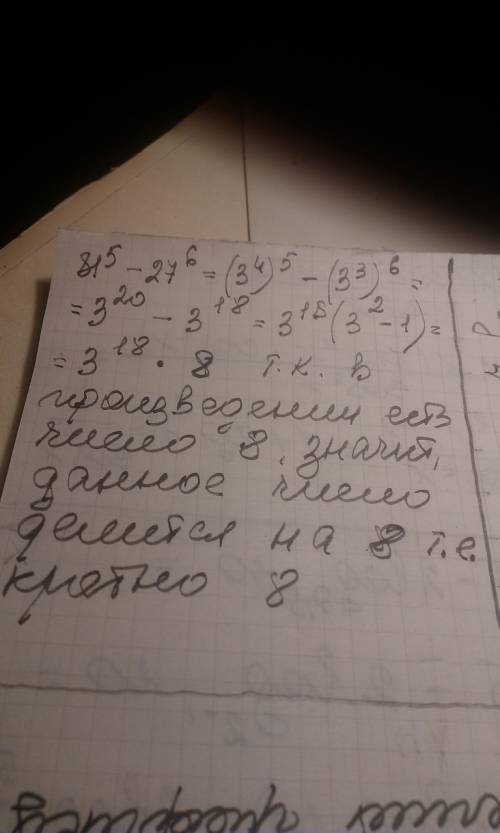 81⁵ - 27⁶ = (3⁴)⁵ - (3³)⁶ =
= 3²⁰ - 3¹⁸ = 3¹⁸(3² - 1) =
= 3¹⁸ · 8 т.к. в
произведении есть
число 8, значит,
данное число
делится на 8 т.е.
кратно 8